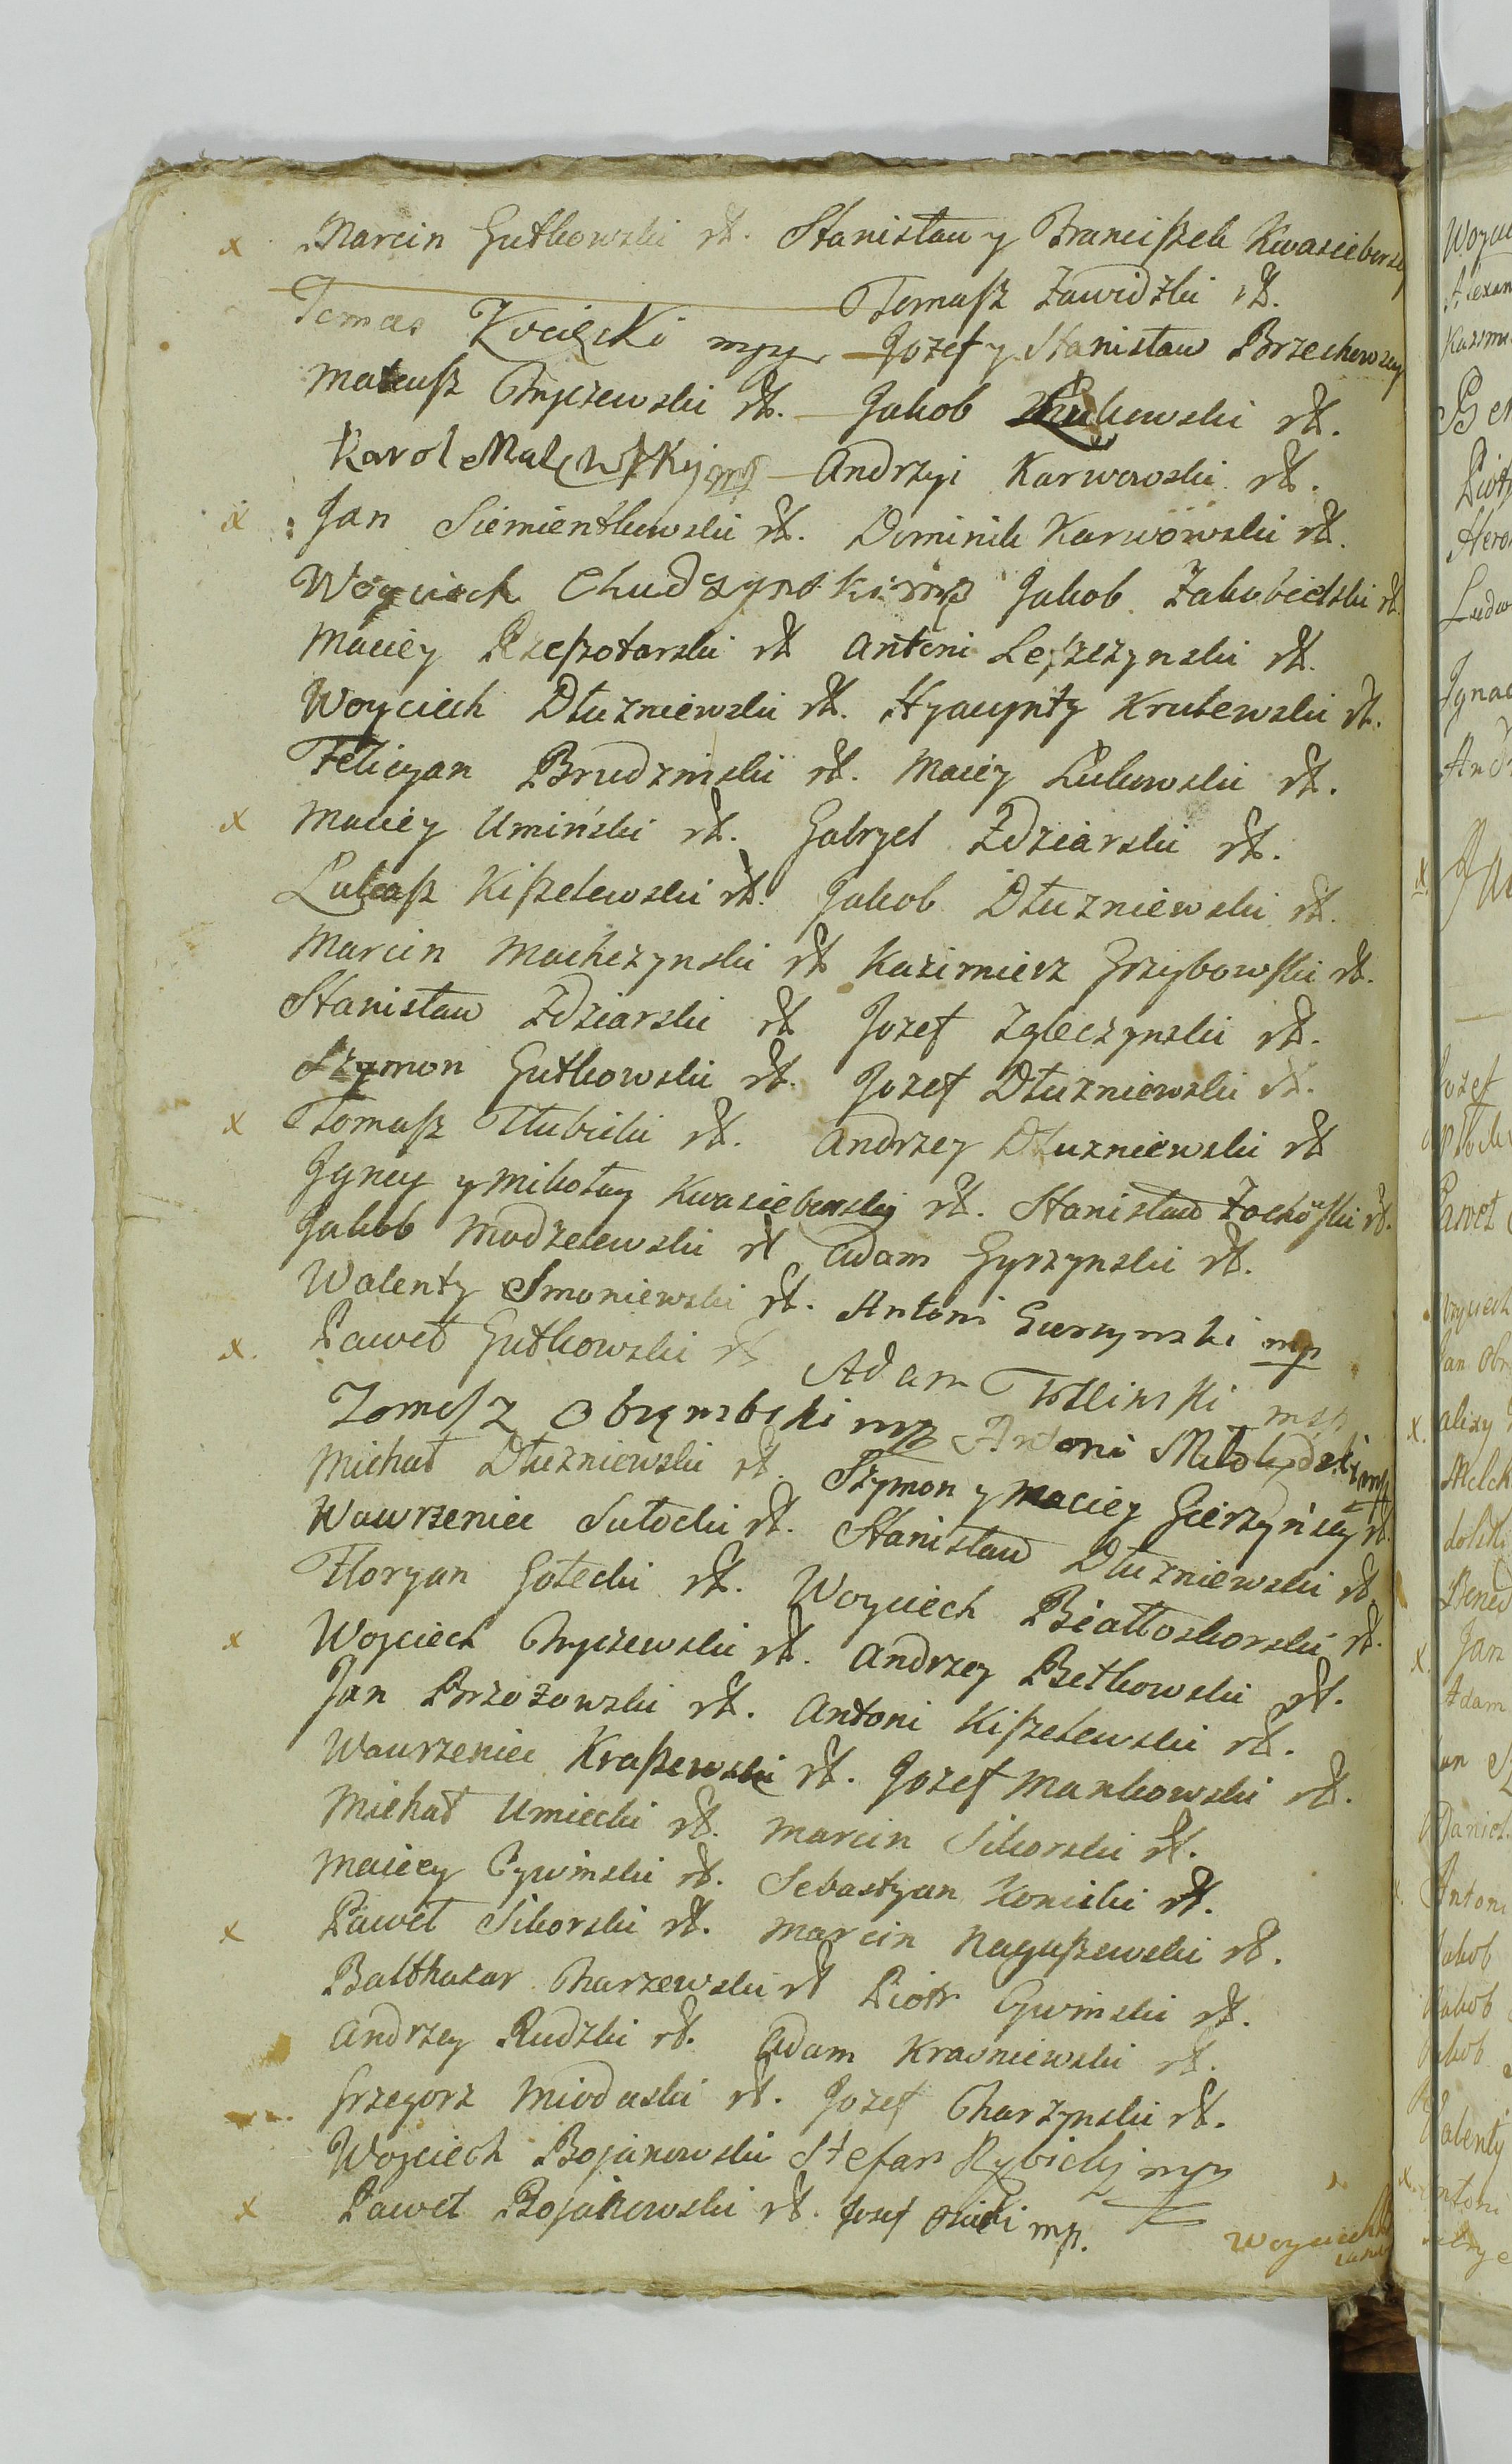 x Marcin Gutkowski rK. Stanisław y Franciszek Kwasiebors
Tomasz Zawidzki rK.
Tomas Kocięcki mpp Jozef y Stanisław Brzechowscy
Mateusz Chyczewski rK. Jakob
Karol Malewski mp Andrzyi Karwowski rK.
x Jan Siemientkowski rK. Dominik Karwowski rK.
Woyciech Chudzynski mp Jakob Zakobielski rK.
Maciey Rzeszotarski rK Antoni Leszczynski rK.
Woyciech Dłuzniewski rK. Hyacynty Krulewski rK.
Felicyan Brudzinski rK. Maciey Łukowski rK.
x Maciey Umiński rK. Gabryel Zdziarski rK.
Łukasz Kiszelewski rK. Jakob Dłuzniewski rK.
Marcin Machczynski rK Kazimierz Grzybowski rK.
Stanisław Zdziarski rK Jozef Zgleczynski rK.
Szymon Gutkowski rK. Jozef Dłuzniewski rK.
x Tomasz Tłubicki rK. Andrzey Dłuzniewski rK
y Mikołay Kwasieborscy rK. Stanisław Żochowski rK.
Jakob Modzelewski rK Adam Gyrzynski rK.
Walenty Smoniewski rK. Antoni Gierzynski mp
x. Paweł Gutkowski rK Adam Tosliński mp
Tomasz Obrębski mp Antoni Miłobędzki mp
Michał Dłuzniewski rK. Szymon y Maciey Gierzyńscy rK.
Wawrzeniec Sułocki rK. Stanisław Dłuzniewski rK.
Floryan Gołecki rK. Woyciech Białłoskorski rK.
x Wojciech Chyczewski rK. Andrzey Betkowski rK.
Jan Brzozowski rK. Antoni Kiszelewski rK.
Wawrzeniec Kraszewski rK. Jozef Mankowski rK.
Michał Umiecki rK. Marcin Sikorski rK.
Maciey Cywinski rK. Sebastyan Konicki rK.
x Paweł Sikorski rK. Marcin Naguszewski rK.
Balthazar Charzewski rK Piotr Cywinski rK.
Andrzey Rudzki rK. Adam Krasniewski rK.
Grzegorz Mioduski rK. Jozef Charzynski rK.
Wojciech Bojanowski Stefan Rybicky mpp
x Paweł Bojanowski rK. Josef mp.
Woyciech